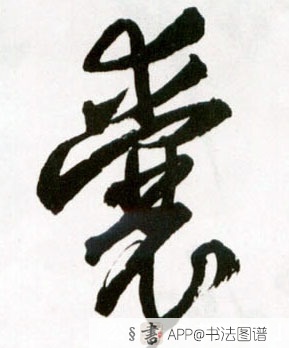 囊
§ 書 APP@书法图谱